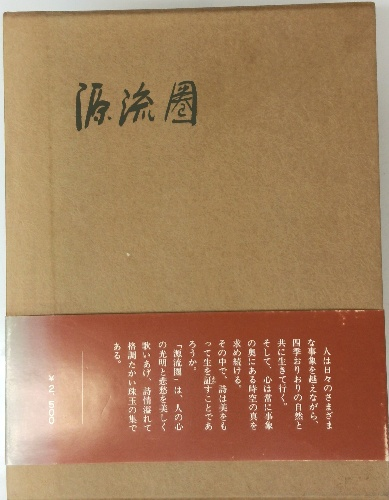 源流圏
人は日々のさまざま
な事象を越えながら、
四季おりおりの自然と
共に生きて行く。
そして、心は常に事象
の奥にある時空の真を
求め続ける。
その中で、詩は美をも
って生を証すことであ
ろうか。
「源流圏」は、人の心
の光明と悲愁を美しく
歌いあげ、詩情溢れて
格調たかい珠玉の集で
ある。